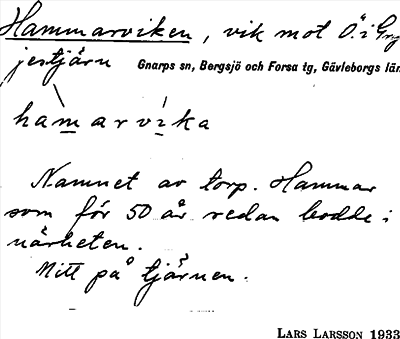 Hammarviken, vik mot Ö. i Gry
jestjärn Gnarps sn, Bergsjö och Forsa tg, Gävleborgs län
hamarvika
Namnet av torp. Hammar
som för 50 år redan bodde i
närheten.
Mitt på tjärnen.
LARS LARSSON 1933